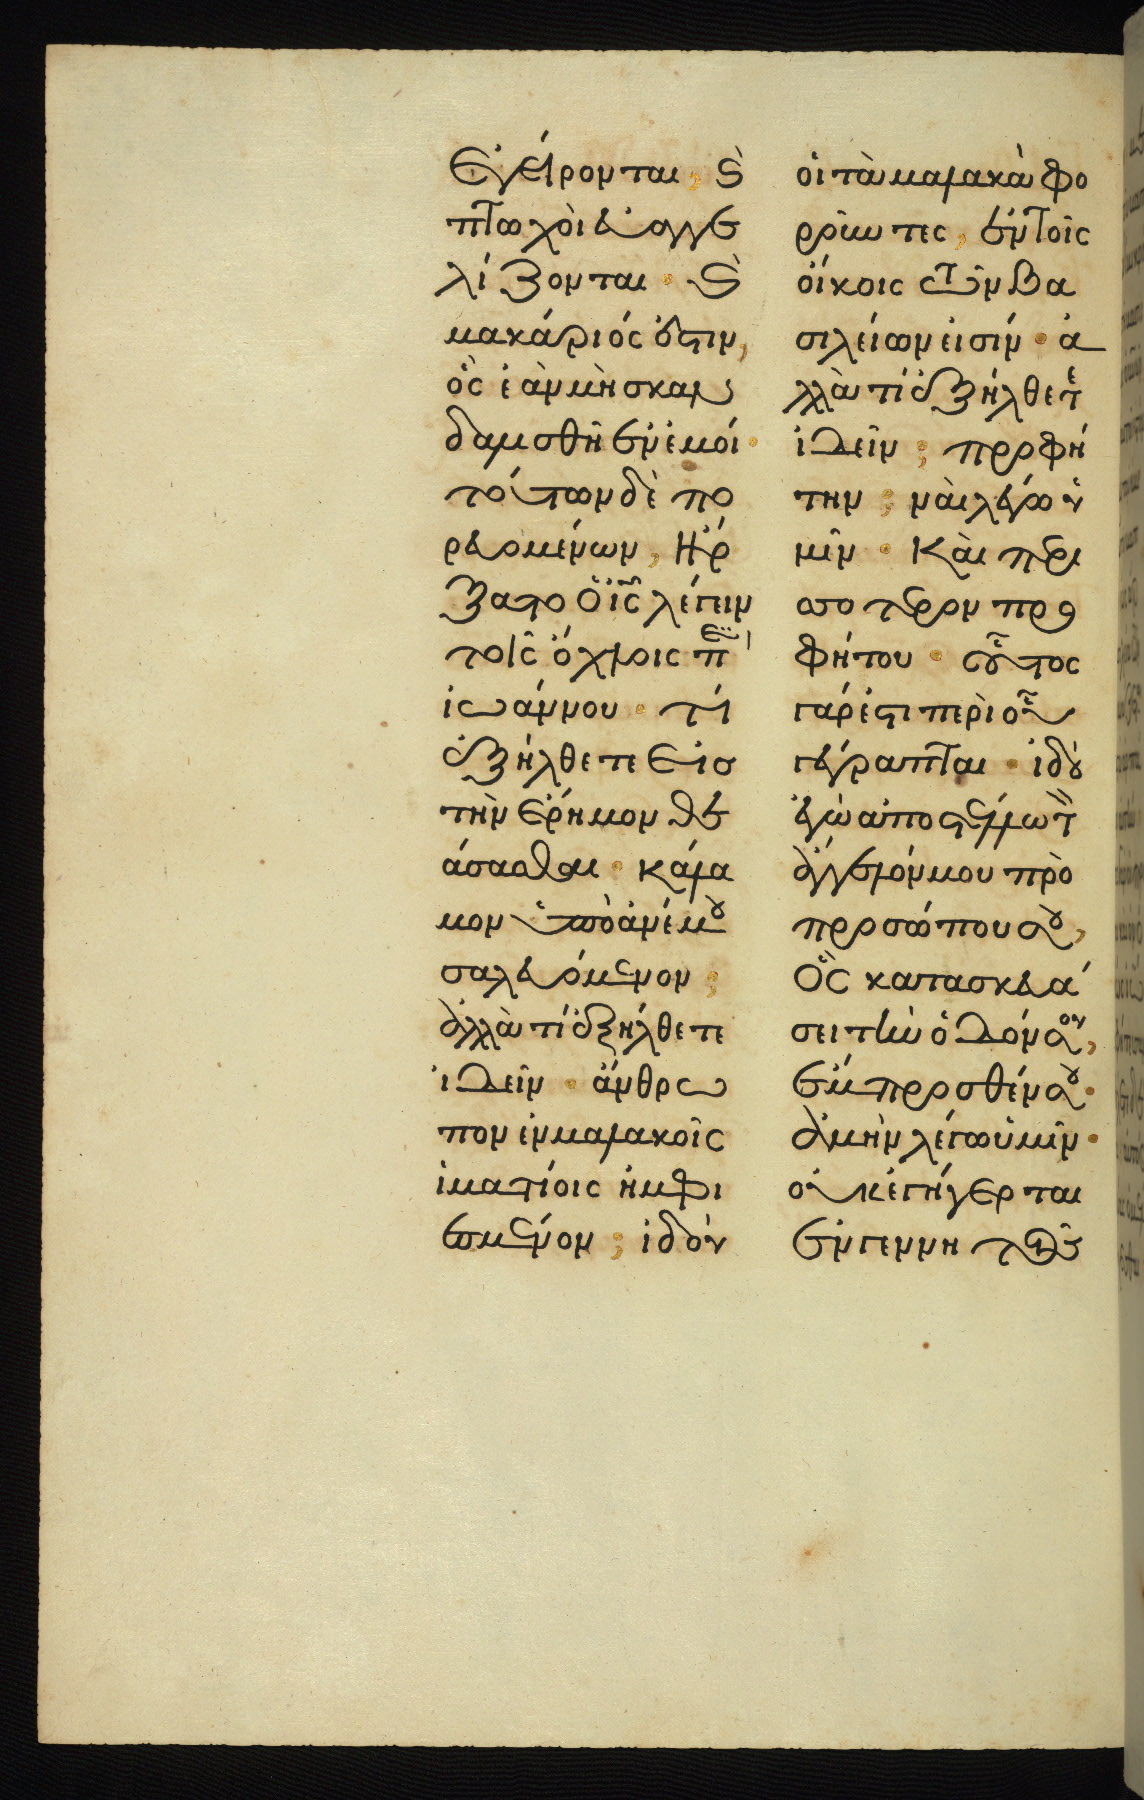 ἐγείρονται, ϗ
πτωχοὶ εὐαγγε
λίζονται· ϗ
μακάριός ἐστιν,
ὃς ἐὰν μὴ σκαν
δαλισθῆ ἐν ἐμοί·
τούτων δὲ πο
ρευομένων, ἤρ
ξατο ὁ ἰς̅ λέγειν
τοῖς ὄχλοις πε̅ρὶ
ἰωάννου· τί
ἐξήλθετε εἰς
τὴν ἔρημον θε
άσασθαι· κάλα
μον ὑπὸ ἀνέμου
σαλευόμενον;
ἀλλὰ τί ἐξήλθετε
ἰδεῖν· ἄνθρω
πον ἐν μαλακοῖς
ἱματίοις ἠμφι
εσμένον; ἰδοὺ
οἱ τὰ μαλακὰ φο
ροῦντες, ἐν τοῖς
οἴκοις τῶν βα
σιλείων εἰσίν· ἀ
λλὰ τί ἐξήλθετε
ἰδεῖν; προφή
την; ναὶ λέγω ὑ
μῖν· καὶ περι
σσοτερον προ
φήτου· οὗτος
γάρ ἐστι περὶ οὗ
γέγραπται· ἰδοὺ
ἐγὼ ἀποστέλλω τ̀
ἄγγελόν μου πρὸ
προσώπου σου,
ὃς κατασκευά
σει τὴν ὁδόν σου,
ἔμπροσθέν σου·
ἀμὴν λέγω ὑμῖν·
οὐκ ἐγήγερται
ἐν γεννητοῖς